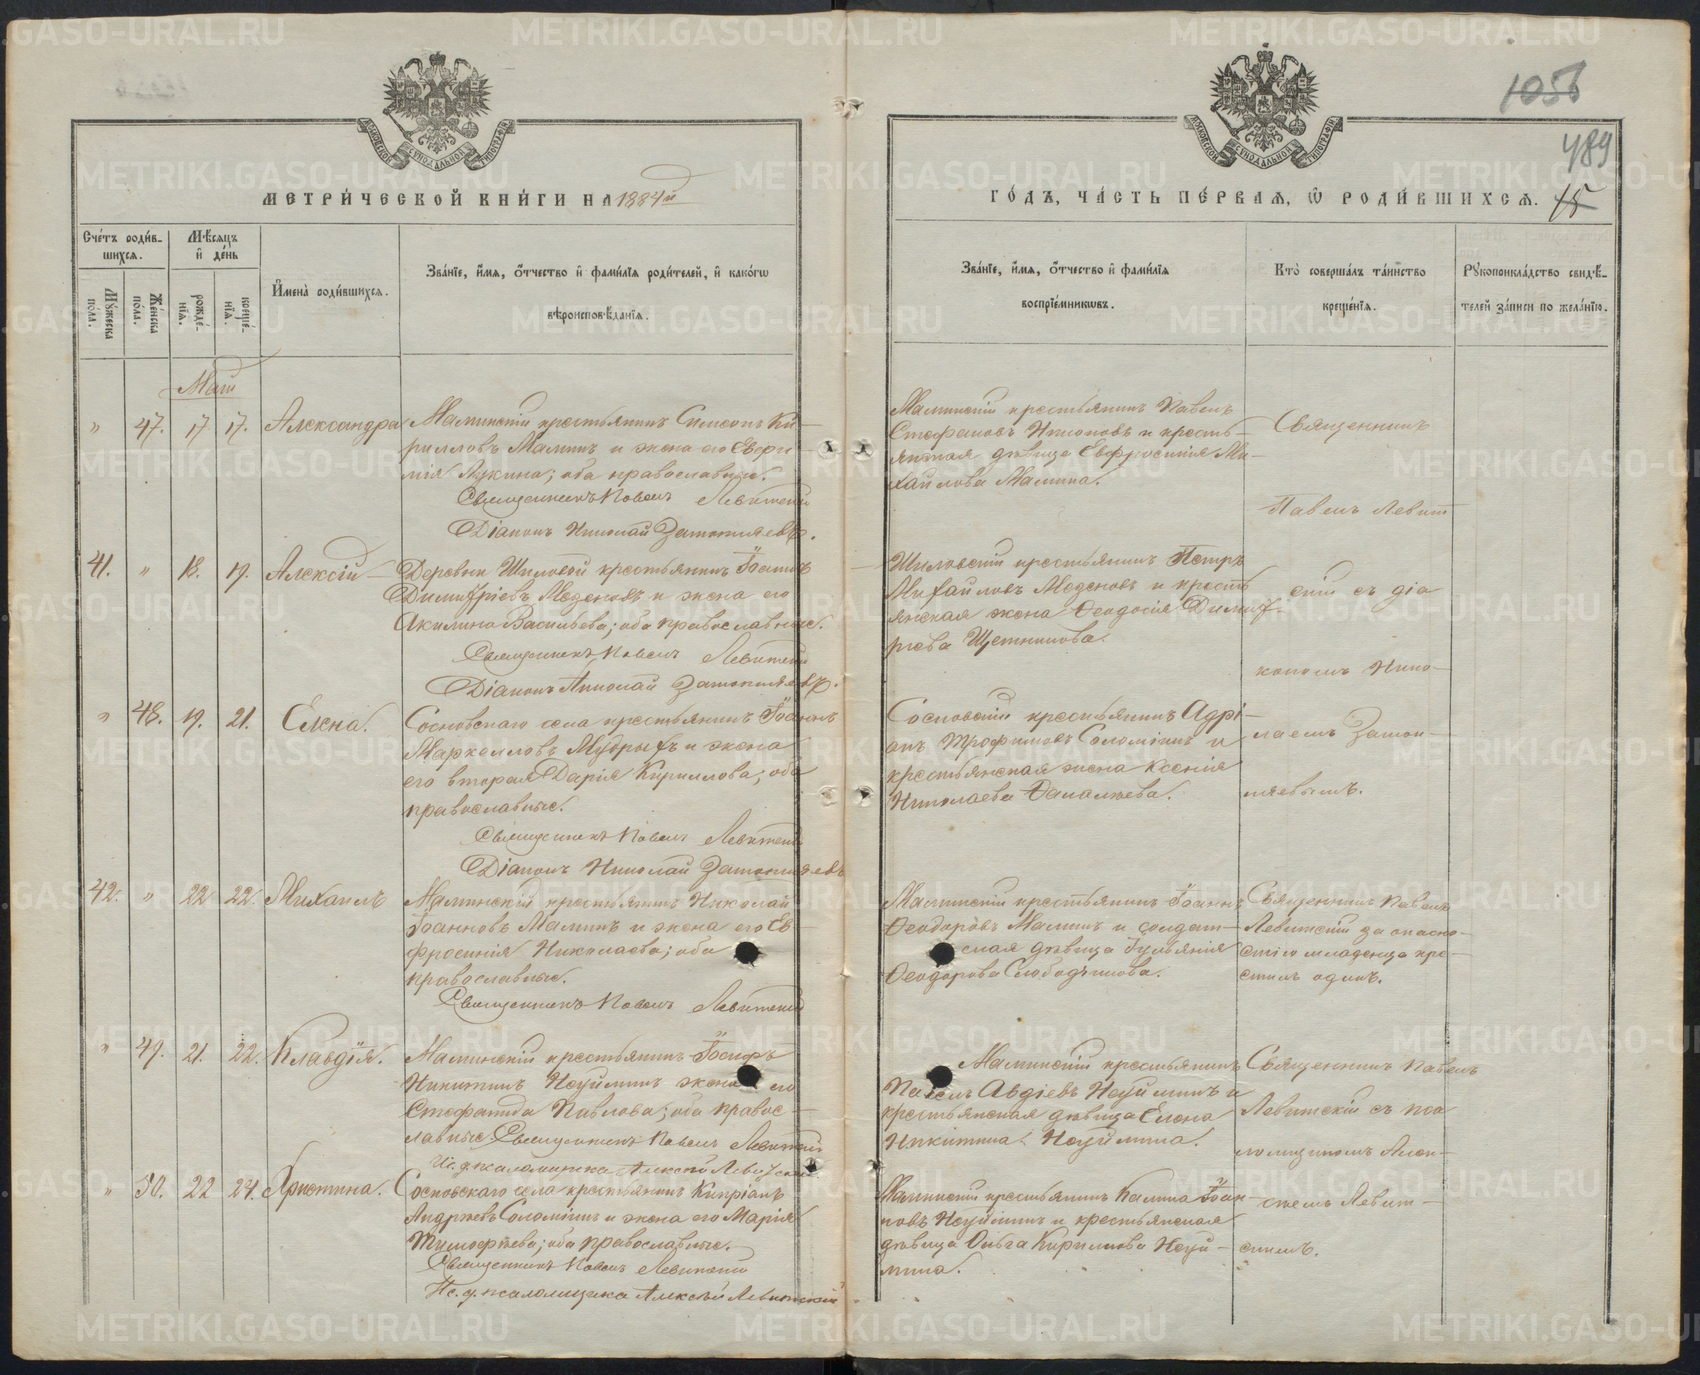 1056
489
15
МЕТРИ́ЧЕСКОЙ КНИ́ГИ НА 1884й
ГО́ДЪ, ЧА́СТЬ ПЕ́РВАЯ, Ѡ РОДИ́ВШИХСЯ.
Сче́тъ роди́в-
шихся.
Мѣ́сяцъ
и҆ де́нь
Му́жеска
по́ла.
Же́нска
по́ла.
рожде́-
нїя.
креще́-
нїя.
И҆мена̀ роди́вшихся.
Зва́нїе, и҆́мя, ѻ҆́тчество и҆ фами́лїя роди́телей, и҆ како́гѡ
вѣроисповѣ́данїя.
Зва́нїе, и҆́мя, ѻ҆́тчество и҆ фами́лїя
воспрїе́мникѡвъ.
Кто̀ соверша́лъ та́инство
креще́нїя.
Рꙋкоприкла́дство свидѣ́-
телей за́писи по жела́нїю.
Май
" 47. 17 17. Александра
Маминскій крестьянинъ Симеонъ Ки-
рилловъ Маминъ и жена его Евфи-
мія Лукина; оба православные.
Священникъ Павелъ Левитскій
Діаконъ Николай Затопляевъ.
Маминскій крестьянинъ Павелъ
Стефановъ и кресть-
янская дѣвица Евфросинія Ми-
хайлова Мамина.
Священникъ
Павелъ Левит-
41. " 18. 19. Алексій
Деревни Шиловой крестьянинъ Іоаннъ
Димитріевъ Меденовъ и жена его
Акилина Васильева; оба православные.
Священникъ Павелъ Левитскій
Діаконъ Николай Затопляевъ.
Шиловскій крестьянинъ Петръ
Михайловъ Меденовъ и кресть-
янская жена Ѳеодосія Димит-
ріева Щетникова.
скій съ діа-
кономъ Нико-
" 48. 19. 21. Елена.
Сосновскаго села крестьянинъ Іоаннъ
Маркелловъ Мудрыхъ и жена
его вторая Дарія Кириллова; оба
православные.
Священникъ Павелъ Левитскій
Діаконъ Николай Затопляевъ
Сосновскій крестьянинъ Адрі-
анъ Трофимовъ Соломеинъ и
крестьянская жена Ксенія
Николаева
лаемъ Затоп-
ляевымъ.
42. " 22 22. Михаилъ
Маминскій крестьянинъ Николай
Іоанновъ Маминъ и жена его Ев-
фросинія Николаева; оба
православные.
Священникъ Павелъ Левитскій
Маминскій крестьянинъ Іоаннъ
Ѳеодоровъ Маминъ и солдат-
ская дѣвица Іуліанія
Ѳеодорова Слободчикова.
Священникъ Павелъ
Левитскій за опасно-
стію младенца кре-
стилъ одинъ.
" 49. 21. 22. Клавдія.
Маминскій крестьянинъ Іосифъ
Никитинъ Неуйминъ жена его
Стефанида Павлова; оба правос-
лавные Священникъ Павелъ Левитскій
Ис. д. псаломщика Алексѣй Левитскій
Маминскій крестьянинъ
Павелъ Авдіевъ Неуйминъ и
крестьянская дѣвица Елена
Никитина Неуймина.
Священникъ Павелъ
Левитскій съ пса-
ломщикомъ Алек-
" 50. 22 24. Христина.
Сосновскаго села крестьянинъ Кипріанъ
Андреевъ Соломеинъ и жена его Марія
Тимофеева; оба православные.
Священникъ Павелъ Левитскій
Ис. д. псаломщика Алексѣй Левитскій
Маминскій крестьянинъ Калина Іоан-
новъ Неуйминъ и крестьянская
дѣвица Ольга Кириллова Неуй-
мина.
сѣемъ Левит-
скимъ.
METRIKI.GASO-URAL.RU